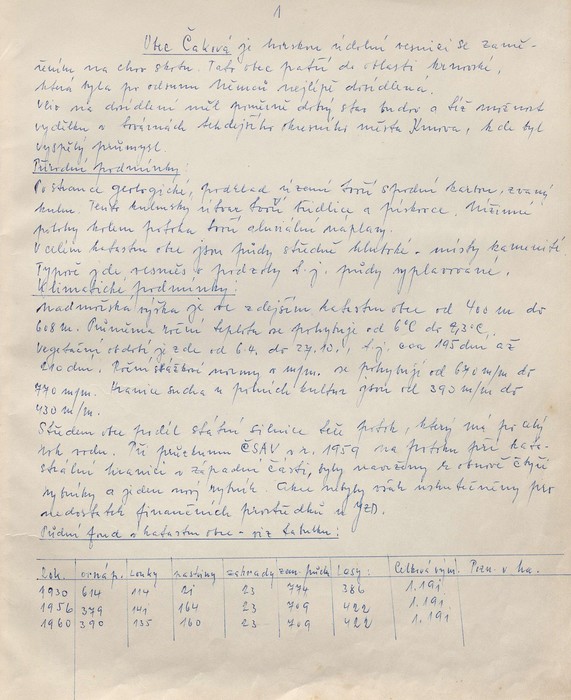 1
Obec Čaková je horskou údolní vesnicí se zamě-
řením na chov skotu. Tato obec patří do oblasti krnovské,
která byla po odsunu Němců nejlépe dosídlená.
Vliv na dosídlení měl poměrně dobrý stav budov a též možnost
výdělku v továrnách tehdejšího okresního města Krnova, kde byl
vyspělý průmysl.
Přírodní podmínky:
Po stránce geologické, podklad území tvoří spodní karbon, zvaný
kulm. Tento kulmský útvar tvoří břidlice a pískovce. Nížinné
polohy kolem potoka tvoří aluviální náplavy.
V celém katastru obce jsou půdy středně hluboké - místy kamenité
Typově jde vesměs o podzoly t. j. půdy vyplavované.
Klimatické podmínky:
Nadmořská výška je ve zdejším katastru obce od 400 m do
608 m. Průměrná roční teplota se pohybuje od 6°C do 7,3°C.
Vegetační období je zde od 6.4. do 27.10., t.j. cca 195 dní až
210 dní. Roční srážkové normy v m/m. se pohybují od 670 m/m do
770 m/m. Hranice sucha u polních kultur jsou od 390 m/m do
430 m/m.
Středem obce podél státní silnice teče potok, který má po celý
rok vodu. Při průzkumu ČSAV v r. 1959 na potoku při kata-
strální hranici v západní části, byly navrženy k obnově čtyři
rybníky a jeden nový rybník. Akce nebyly však uskutečněny pro
nedostatek finančních prostředků u JZD.
Půdní fond v katastru obce - viz tabulku:
Rok. orná p. louky pastviny zahrady zem. půdy Lesy: Celková vým. Pozn. v ha.
1930 614 114 21 23 774 386 1.191
1956 379 141 164 23 709 422 1.191
1960 390 135 160 23 709 422 1.191